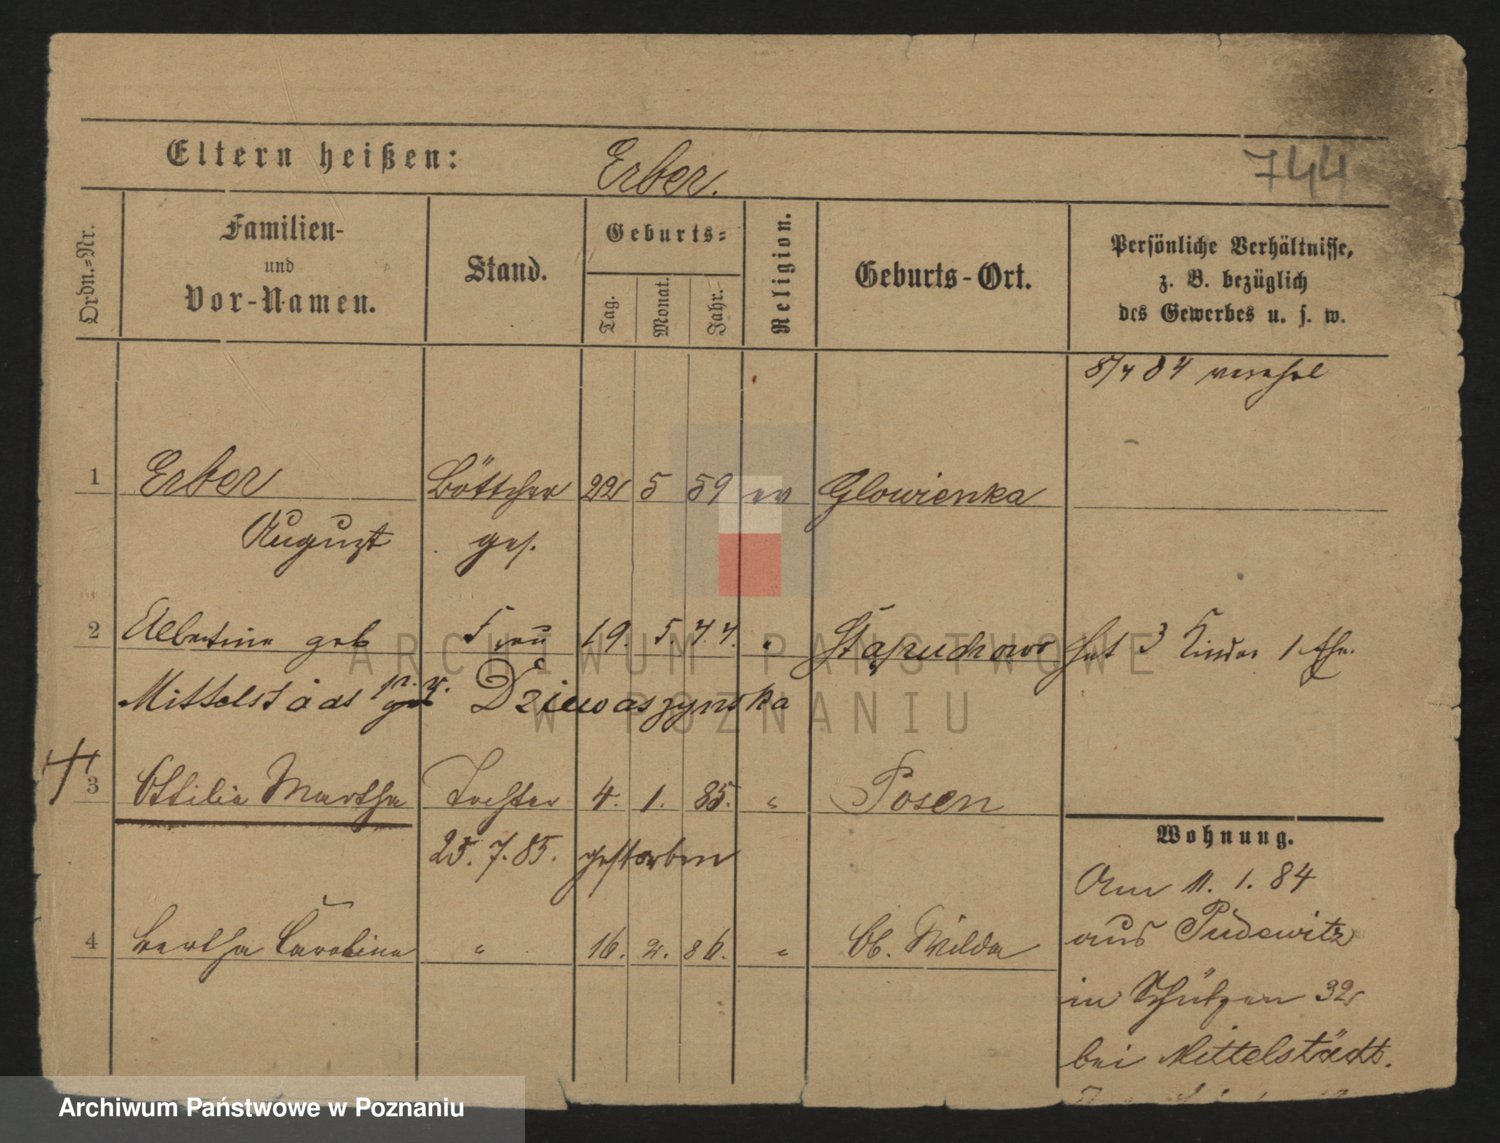 Eltern heißen: Erber.
744
Ordn.=Nr.
Familien-
und
Vor-Namen.
Stand.
Geburts=
Tag.
Monat.
Jahr.
Religion.
Geburts-Ort.
Persönliche Verhältnisse,
z. B. bezüglich
des Gewerbes u. s. w.
1 Erber Böttcher 22 5 59 ev Glowienka
August ges.
2 Albertine geb Frau 19. 5. " hat 3 Kinder 1
Mittelstädt Dziewaszynska
3 Ottilie Martha Tochter 4. 1. 85. " Posen
25. 7. 85. gestorben
4 Bertha Caroline " 16. 2. 86. " Ob. Wilda
Wohnung.
Am 11. 1. 84
aus Pudewitz
in Schützen 32
bei Mittelstädt.
ARCHIWUM PAŃSTWOWE
W POZNANIU
Archiwum Państwowe w Poznaniu